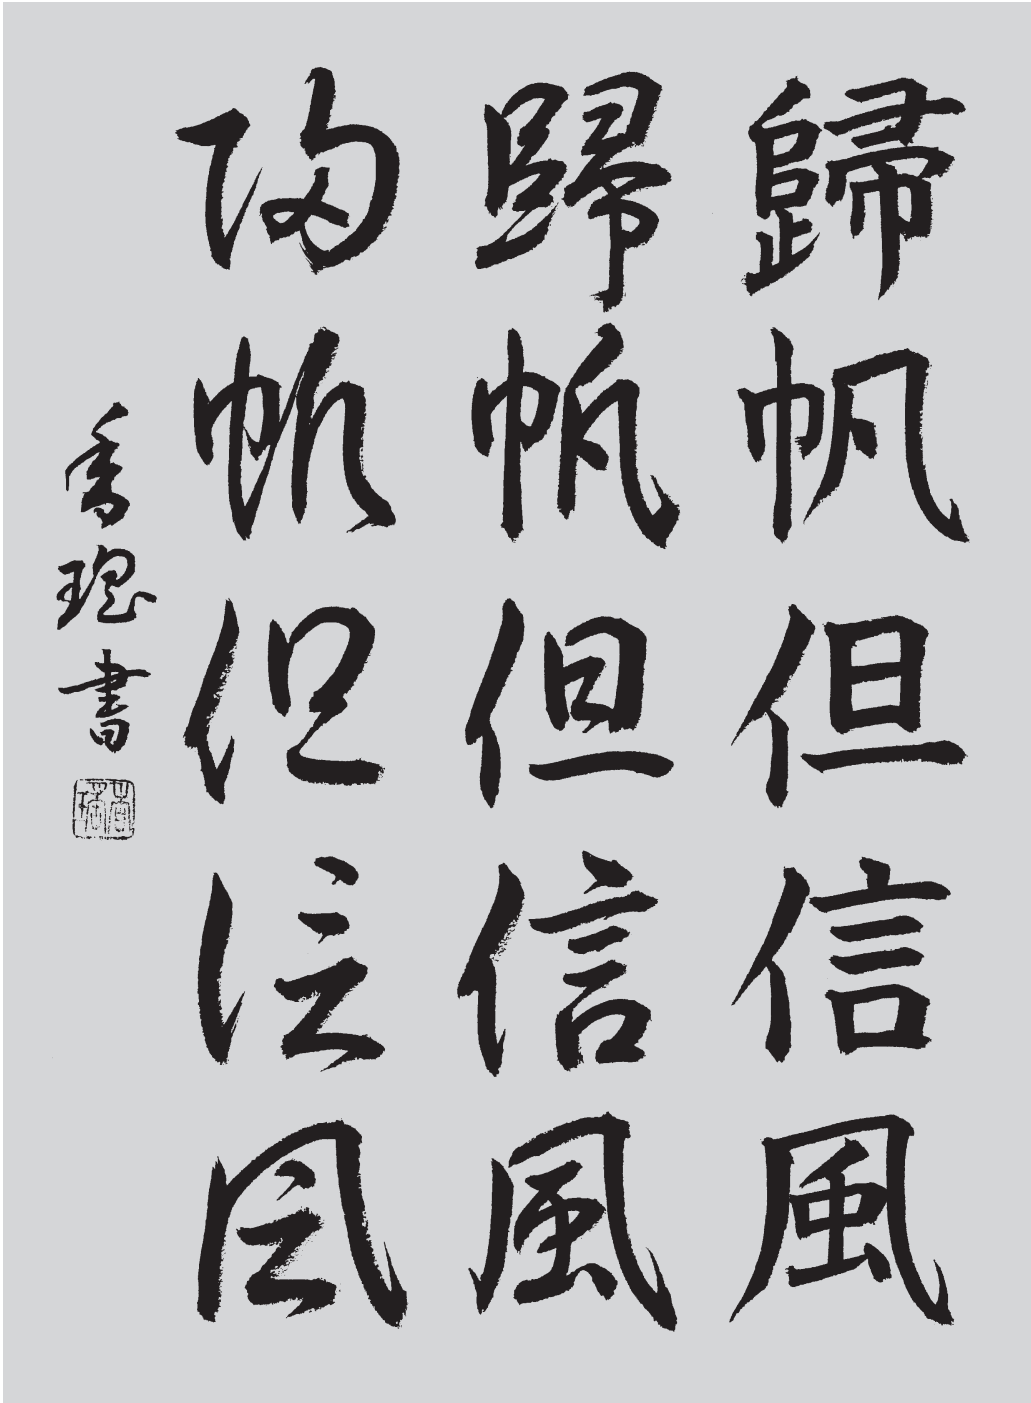 歸帆但信風
歸帆但信風
歸帆但信風
香瑶書